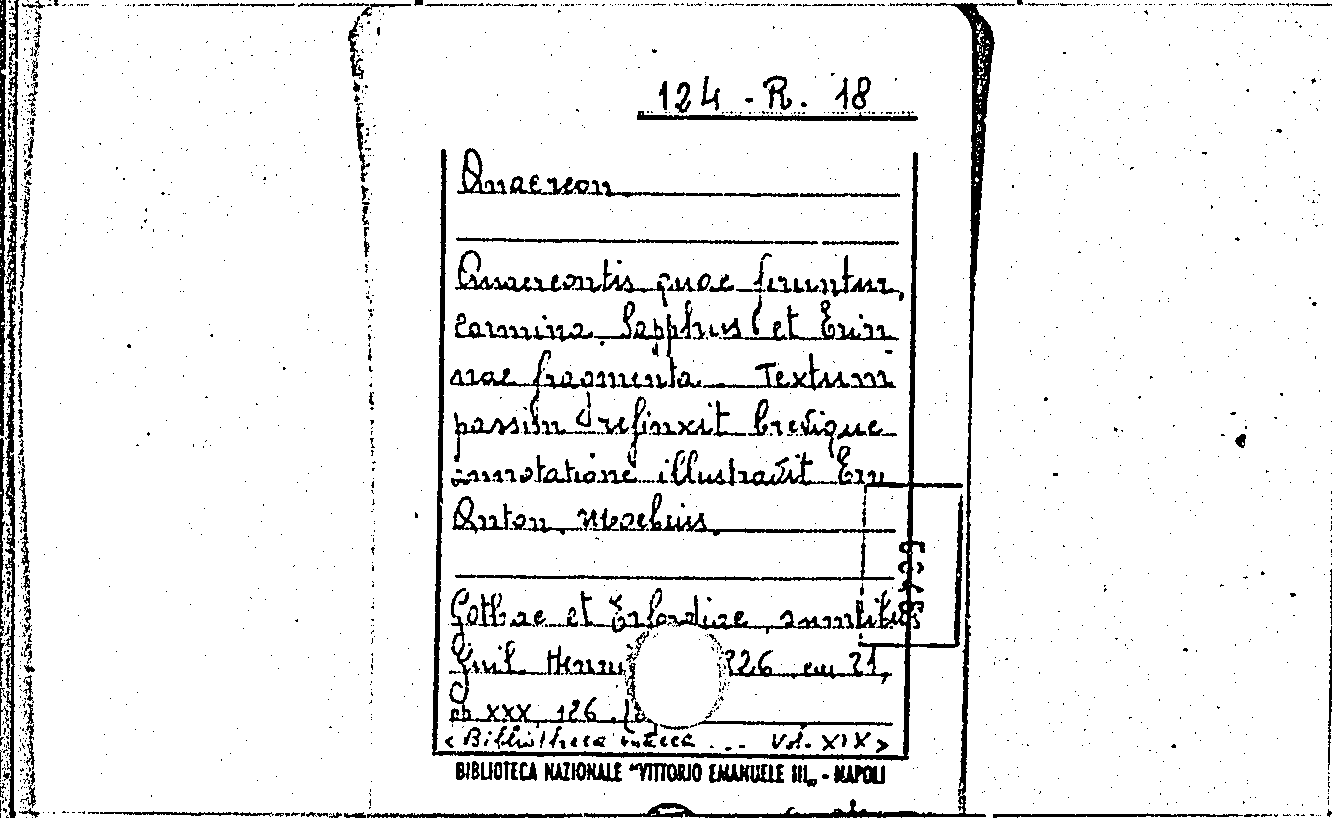 124 - R. 18
Anacreon
Anacreontis quae feruntur,
carmina Sapphus et Erin
nae fragmenta. Textum
passim refinxit brevique
annotatione illustravit Ern
Anton Moebius
Gothae et Erfordiae, sumtibus
Guil. Henni 226 cm 21,
pp XXX, 126.
<Bibliotheca graeca ... Vol. XIX>
BIBLIOTECA NAZIONALE "VITTORIO EMANUELE III„ - NAPOLI